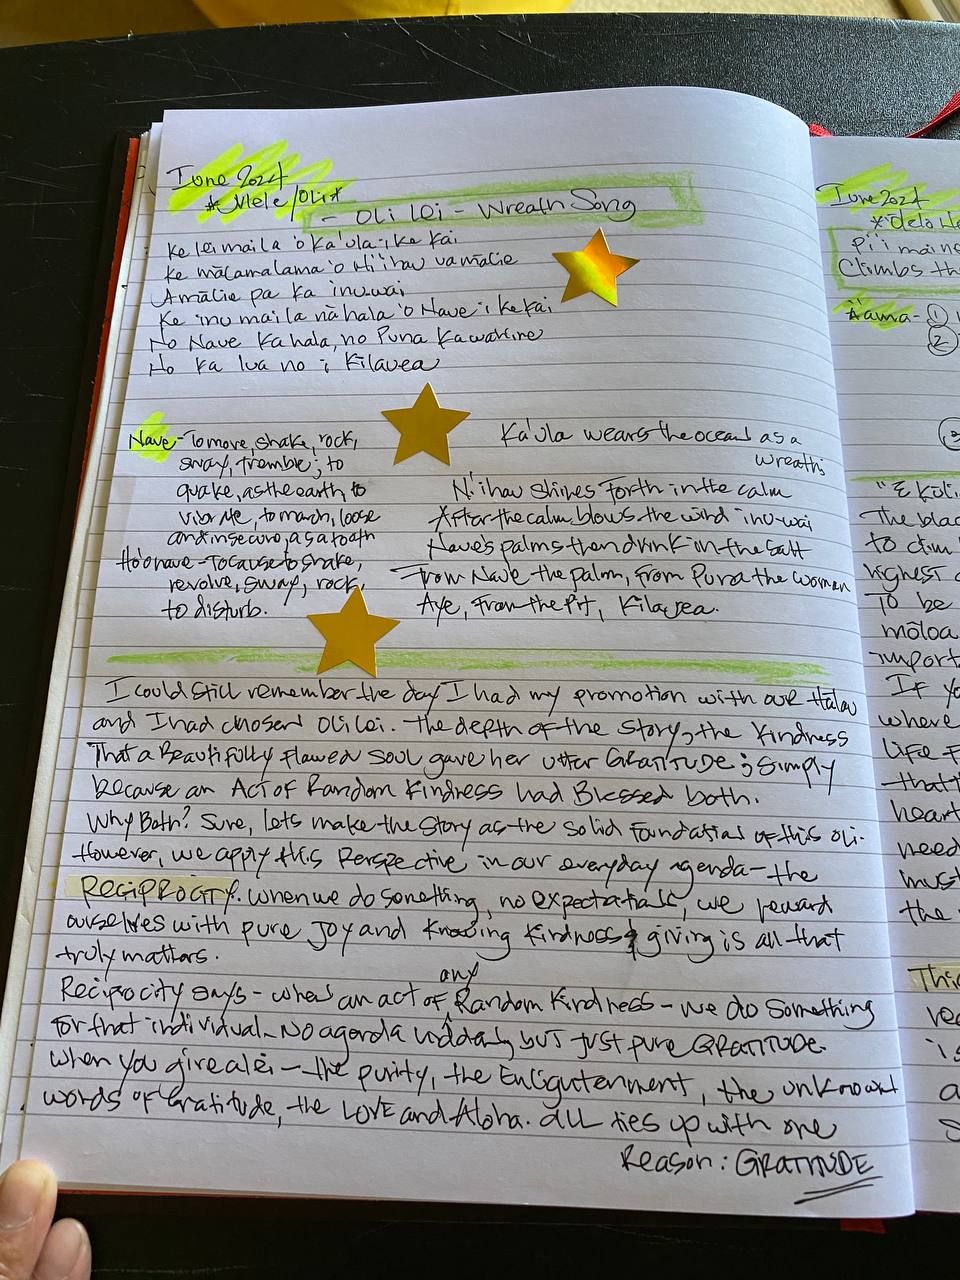 June 2024
*Mele/Oli*
- Oli Lei - Wreath Song
Ke lei maila 'o Ka'ula i ke kai
Ke mālamalama 'o Ni'ihau ua mālie
A mālie pa ka inuwai
Ke inu maila nā hala 'o Nave i ke kai
No Nave ka hala, no Puna ka wahine
No ka lua no i Kilauea
Nave - To move, shake, rock,
sway, tremble; to
quake, as the earth, to
vibrate, to march, loose
and insecure, as a tooth
Ho'onave - To cause to shake,
revolve, sway, rock,
to disturb.
Ka'ula wears the ocean as a
wreath;
Ni'ihau shines forth in the calm
After the calm blows the wind inu-wai
Nave's palms then drink in the salt
From Nave the palm, from Puna the woman
Aye, from the pit, Kilauea.
I could still remember the day I had my promotion with our Halau
and I had chosen Oli Lei. The depth of the story, the kindness
That a Beautifully flawed soul gave her utter GRATITUDE; simply
because an Act of Random Kindness had Blessed both.
Why Both? Sure, lets make the story as the solid foundation of this oli.
However, we apply this Perspective in our everyday agenda - the
RECIPROCITY. When we do something, no expectations, we reward
ourselves with pure joy and knowing kindness & giving is all that
truly matters.
Reciprocity says - when an act of any Random Kindness - we do something
for that individual - No agenda but just pure GRATITUDE.
When you give a lei - the purity, the Enlightenment, the unknown
words of Gratitude, the LOVE and Aloha. All ties up with one
Reason: GRATITUDE
June 2024
Pi'i mai
Climbs th
A'ama - ①
②
③
"E
The blac
to clim
highest
To be
mōloa
import
If yo
where
life
that
heart
need
must
the
This
is
a